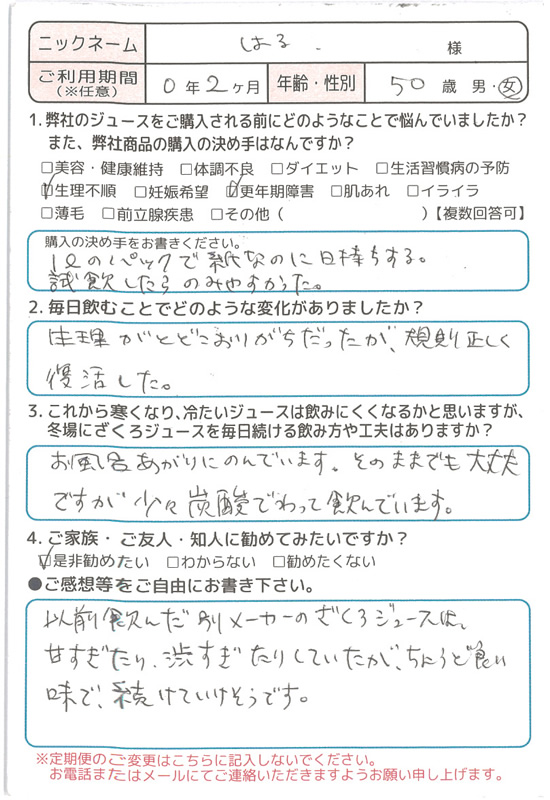 ニックネーム はる 様
ご利用期間(※任意) 0年2ヶ月 年齢・性別 50歳 男・女
1.弊社のジュースをご購入される前にどのようなことで悩んでいましたか?
また、弊社商品の購入の決め手はなんですか?
□美容・健康維持 □体調不良 □ダイエット □生活習慣病の予防
☑生理不順 □妊娠希望 ☑更年期障害 □肌あれ □イライラ
□薄毛 □前立腺疾患 □その他( )【複数回答可】
購入の決め手をお書きください。
1ℓのパックで紙なのに日持ちする。
試飲したらのみやすかった。
2.毎日飲むことでどのような変化がありましたか?
生理がとどこおりがちだったが、規則正しく
復活した。
3.これから寒くなり、冷たいジュースは飲みにくくなるかと思いますが、
冬場にざくろジュースを毎日続ける飲み方や工夫はありますか?
お風呂あがりにのんでいます。そのままでも大丈夫
ですが少々炭酸でわって飲んでいます。
4.ご家族・ご友人・知人に勧めてみたいですか?
☑是非勧めたい □わからない □勧めたくない
●ご感想等をご自由にお書き下さい。
以前飲んだ別メーカーのざくろジュースは、
甘すぎたり、渋すぎたりしていたが、ちょうど良い
味で、続けていけそうです。
※定期便のご変更はこちらに記入しないでください。
お電話またはメールにてご連絡いただきますようお願い申し上げます。